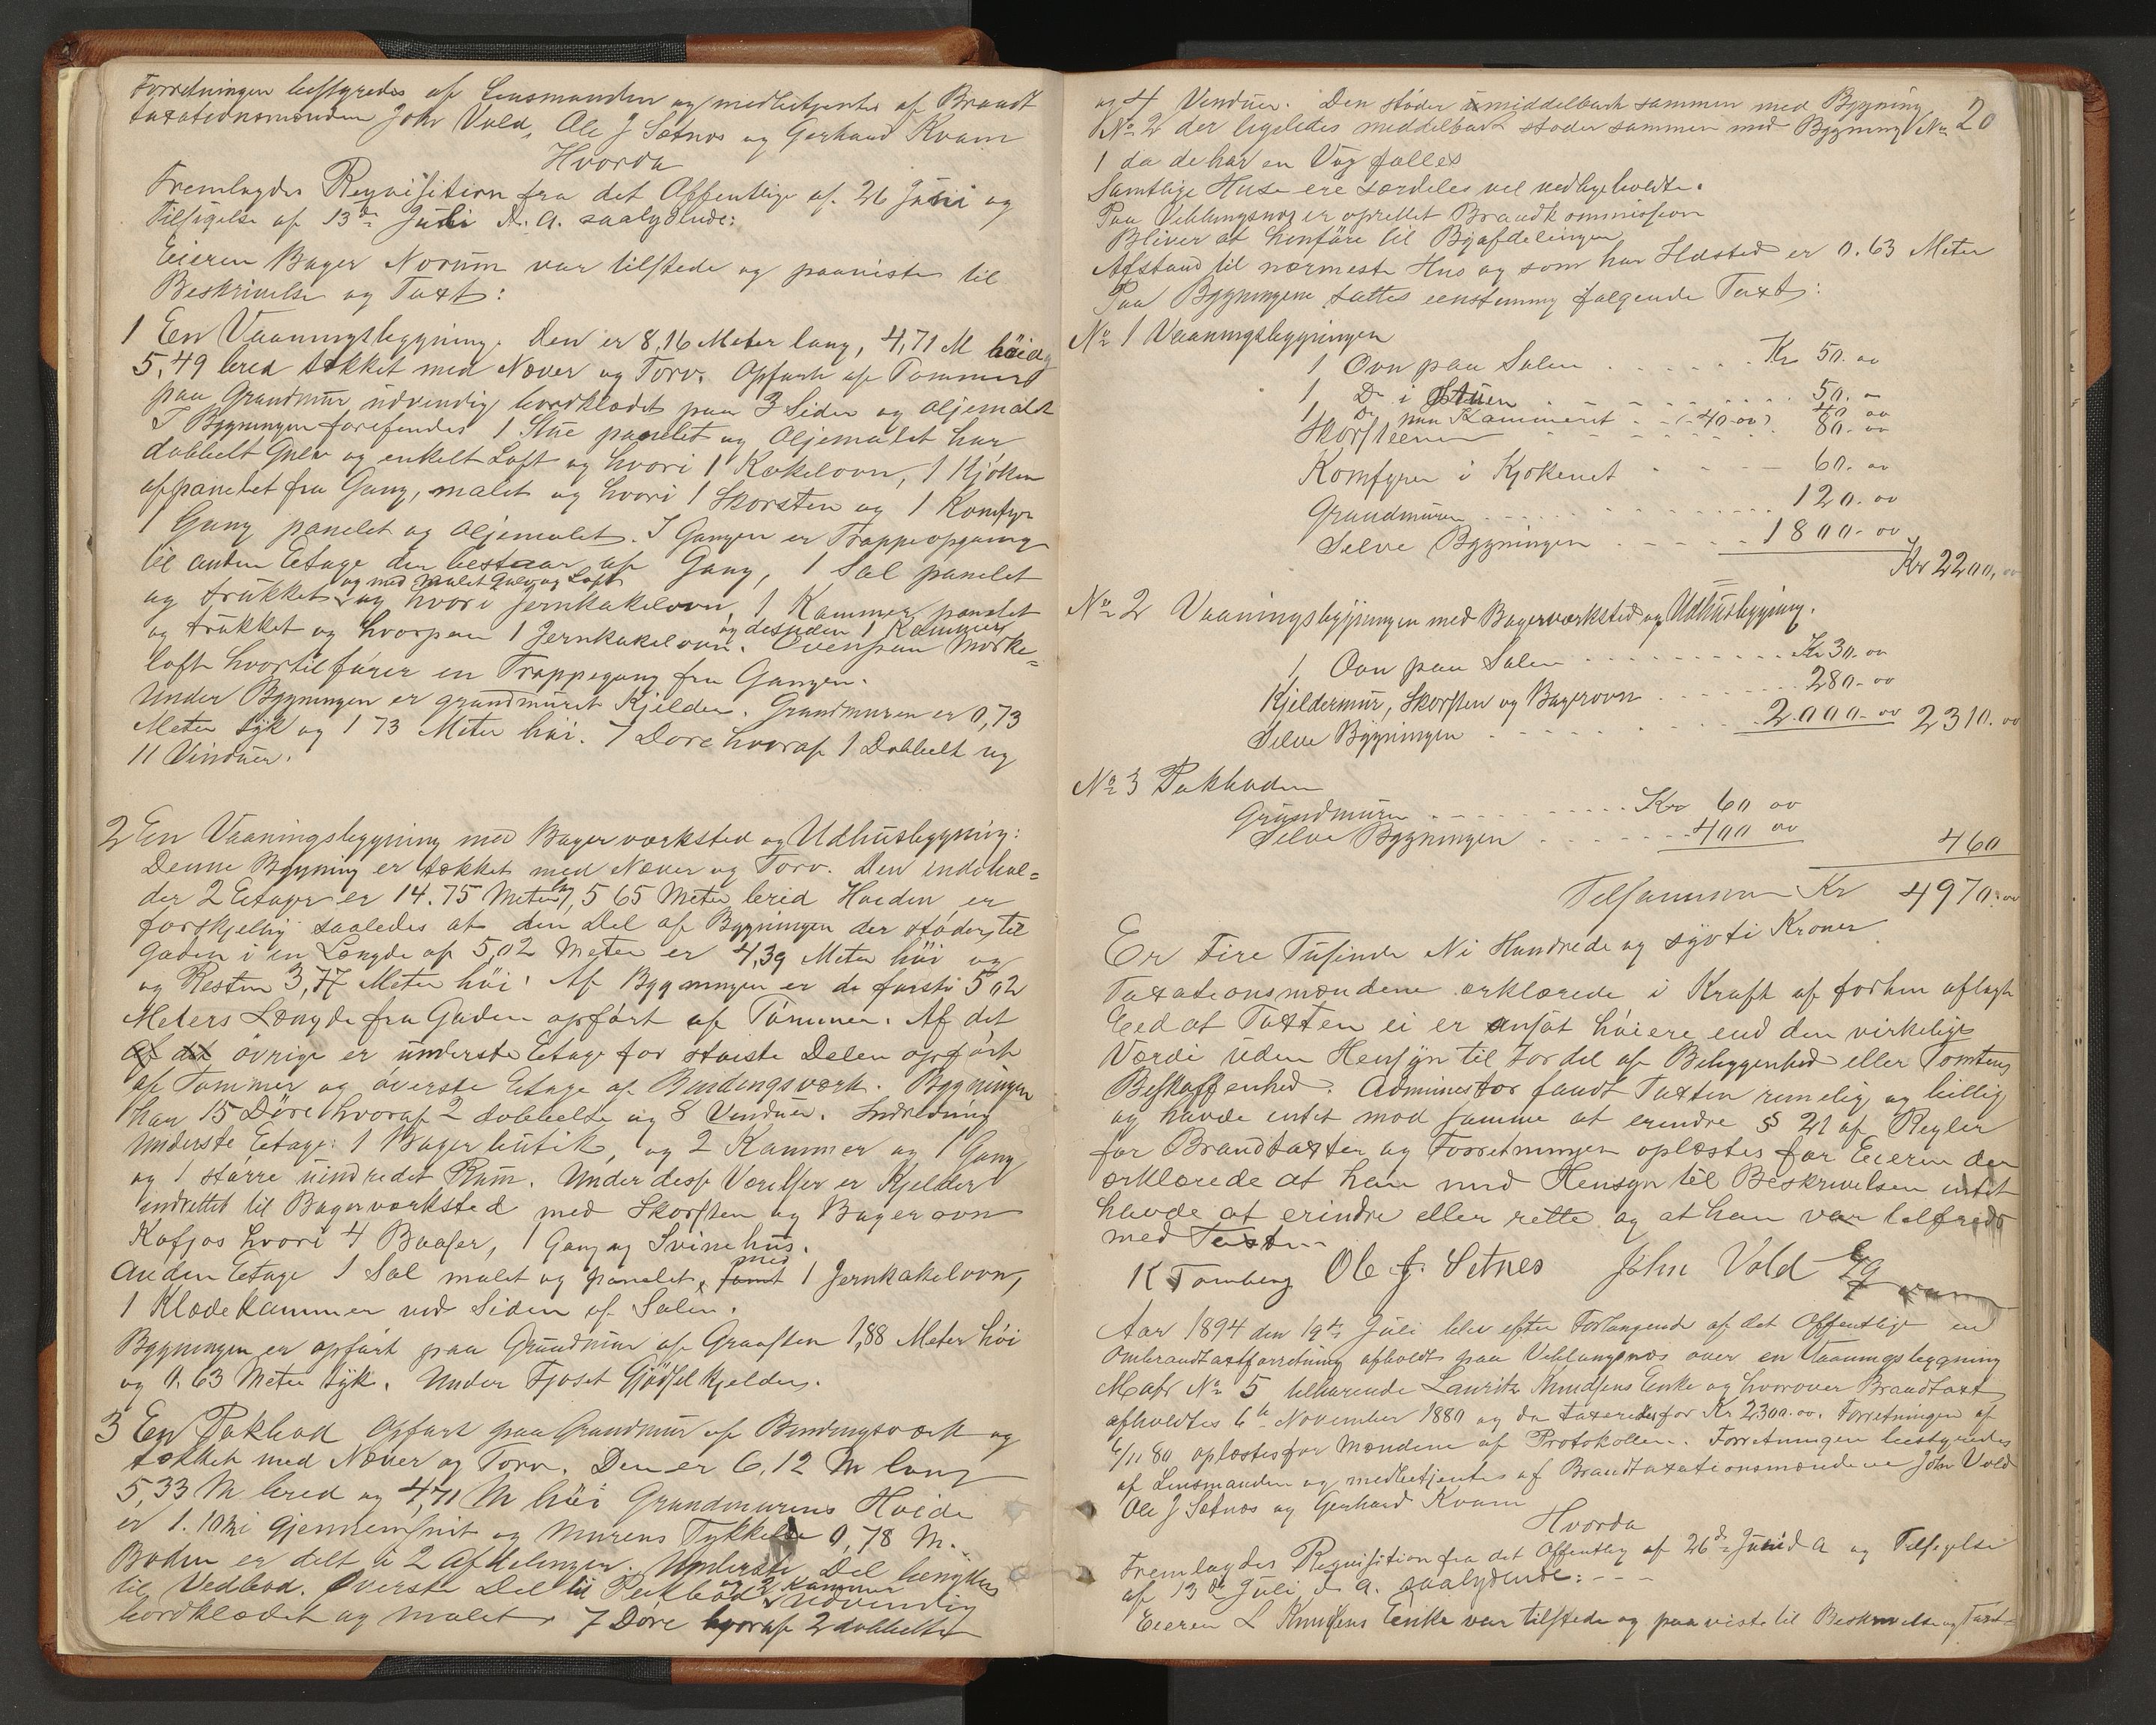 Forretningen bestyredes af Lensmanden og medbetjentes af Brandt
taxationsmænden John Vold, Ole J Setnes og Gerhard Kvam
Hvorda
Fremlagdes Reqvisition fra det Offentlige af 26 Juni og
Tilsigelse af 13de Juli d. A. saalydende:
Eieren Bager Norum var tilstede og paaviste til
Beskrivelse og Taxt:
1 En Vaaningsbygning. Den er 8,16 Meter lang, 4,71 M høi og
5,49 bred tækket med Næver og Torv. Opført af Tømmer
paa Grundmur udvendig bordklædt paa 3 Sider og oljemalt
I Bygningen forefindes 1 Stue panelet og Oljemalet har
dobbelt Gulv og enkelt Loft og hvori 1 Kakelovn, 1 Kjøken
afpanelet fra Gang, malet og hvori 1 Skorsten og 1 Komfyr
1 Gang panelet og Oljemalet. I Gangen er Trappeopgang
til anden Etage der bestaar af Gang, 1 Sal panelet
og med malet Gulv og Loft
og trukket og hvori Jernkakelovn, 1 Kammer panelet
og desuden 1 Kammer
og trukket og hvorpaa 1 Jernkakelovn. Ovenpaa Mørke=
loft hvortil fører en Trappegang fra Gangen.
Under Bygningen er grundmuret Kjelder. Grundmuren er 0,73
Meter tyk og 1 73 Meter høi. 7 Døre hvoraf 1 Dobbelt og
11 Vinduer.
2 En Vaaningsbygning med Bagerværksted og Udhusbygning:
Denne Bygning er tækket med Næver og Torv. Den indehol=
der 2 Etager er 14.75 Meter lng, 5 65 Meter bred Høiden er
forskjellig saaledes at den Del af Bygningen der støder til
Gaden i en Længde af 5,02 Meter er 4,39 Meter høi og
og Resten 3,77 Meter høi. Af Bygningen er de første 5 02
Meters Længde fra Gaden opført af Tømmer. Af det
af det øvrige er underste Etage for største Delen opført
af Tømmer og øverste Etage af Bindingsværk. Bygningen
har 15 Døre hvoraf 2 dobbelte og 8 Vinduer. Indredning
Underste Etage: 1 Bagerbutik, og 2 Kammer og 1 Gang
og 1 større uindredet Rum. Under disse Værelser er Kjelder
indrettet til Bagerværksted med Skorsten og Bagerovn
Kofjøs hvori 4 Baaser, 1 Gang og Svinehus.
Anden Etage 1 Sal malet og panelet, samt med 1 Jernkakelovn,
1 Klædekammer ved Siden af Salen.
Bygningen er opført paa Grundmur af Graasten 1,88 Meter høi
og 0.63 Meter tyk. Under Fjøset Gjødselkjelder.
3 En Pakbod Opført paa Grundmur af Bindingsværk og
tækket med Næver og Torv. Den er 6,12 M lang
5,33 M bred og 4,71 M høi Grundmurens Høide
er 1.10 M i Gjennemsnit og Murens Tykkelse 0,78 M.
Boden er delt i 2 Afdelinger. Underste Del benyttes
til Vedbod. Øverste Del til Pakbod og 2 Kammer Udvendig
bordklædt og malet. 7 Døre hvoraf 2 dobbelte
20
og 4 Vinduer. Den støder umiddelbart sammen med Bygning
No 2 der ligeledes middelbart støder sammen med Bygning No
1 da de har en Væg fælles
Samtlige Huse ere særdeles vel vedligeholdte.
Paa Veblungsnæs er oprettet Brandkommission
Bliver at henføre til Byafdelingen
Afstand til nærmeste Hus og som har Ildsted er 0.63 Meter
Paa Bygningene sattes eenstemmig følgende Taxt:
No 1 Vaaningsbygningen
1 Ovn paa Salen . . . . . . Kr 50. 00
1 Do i Stuen . . . . . . 50. 00
1 Do paa Kammeret . . (40.00) 40 00
Skorstenen . . . . . . 80. 00
Komfyren i Kjøkenet . . . 60. 00
Grundmuren . . . . . . 120. 00
Selve Bygningen . . . . . 1800. 00
Kr 2200, 00
No 2 Vaaningsbygningen med Bagerværksted og Udhusbygning.
1 Ovn paa Salen . . . . . . Kr 30. 00
Kjeldermur, Skorsten og Bagerovn . . . . 280. 00
Selve Bygningen . . . . . . 2000. 00 2310. 00
No 3 Pakboden
Grundmuren . . . . . . Kr 60 00
Selve Bygningen . . . . . . 400 00
460
Tilsammen Kr 4970. 00
Er Fire Tusinde Ni Hundrede og sytti Kroner
Taxationsmændene erklærede i Kraft af forhen aflagt
Eed at Taxten ei er ansat høiere end den virkelige
Værdi uden Hensyn til Fordel af Beliggenhed eller Tomtens
Beskaffenhed. Administor fandt Taxten rimelig og billig
og havde intet mod samme at erindre § 21 af Regler
for Brandtaxter og Forretningen oplæstes for Eieren der
erklærede at han med Hensyn til Beskrivelsen intet
havde at erindre eller rette og at han var tilfreds
med Taxten
K Tomberg Ole J. Setnes John Vold G Kvam
Aar 1894 den 19de Juli blev efter Forlangende af det Offentlige en
Ombrandtaxtforretning afholdt paa Veblungsnæs over en Vaaningsbygning
Matr No 5 tilhørende Lauritz Knudsens Enke og hvorover Brandtaxt
afholdtes 6te November 1880 og da taxeredes for Kr 2300.00. Forretningen af
6/11 80 oplæstes for Mændene af Protokollen. Forretningen bestyredes
af Lensmanden og medbetjentes af Brandtaxationsmændene John Vold
Ole J Setnes og Gerhard Kvam
Hvorda
Fremlagdes Reqvisition fra det Offentlig af 26de Juni d A og Tilsigelse
af 13de Juli d. A. saalydende: - - -
Eieren L Knudsens Enke var tilstede og paaviste til Beskrivelse og Taxt=